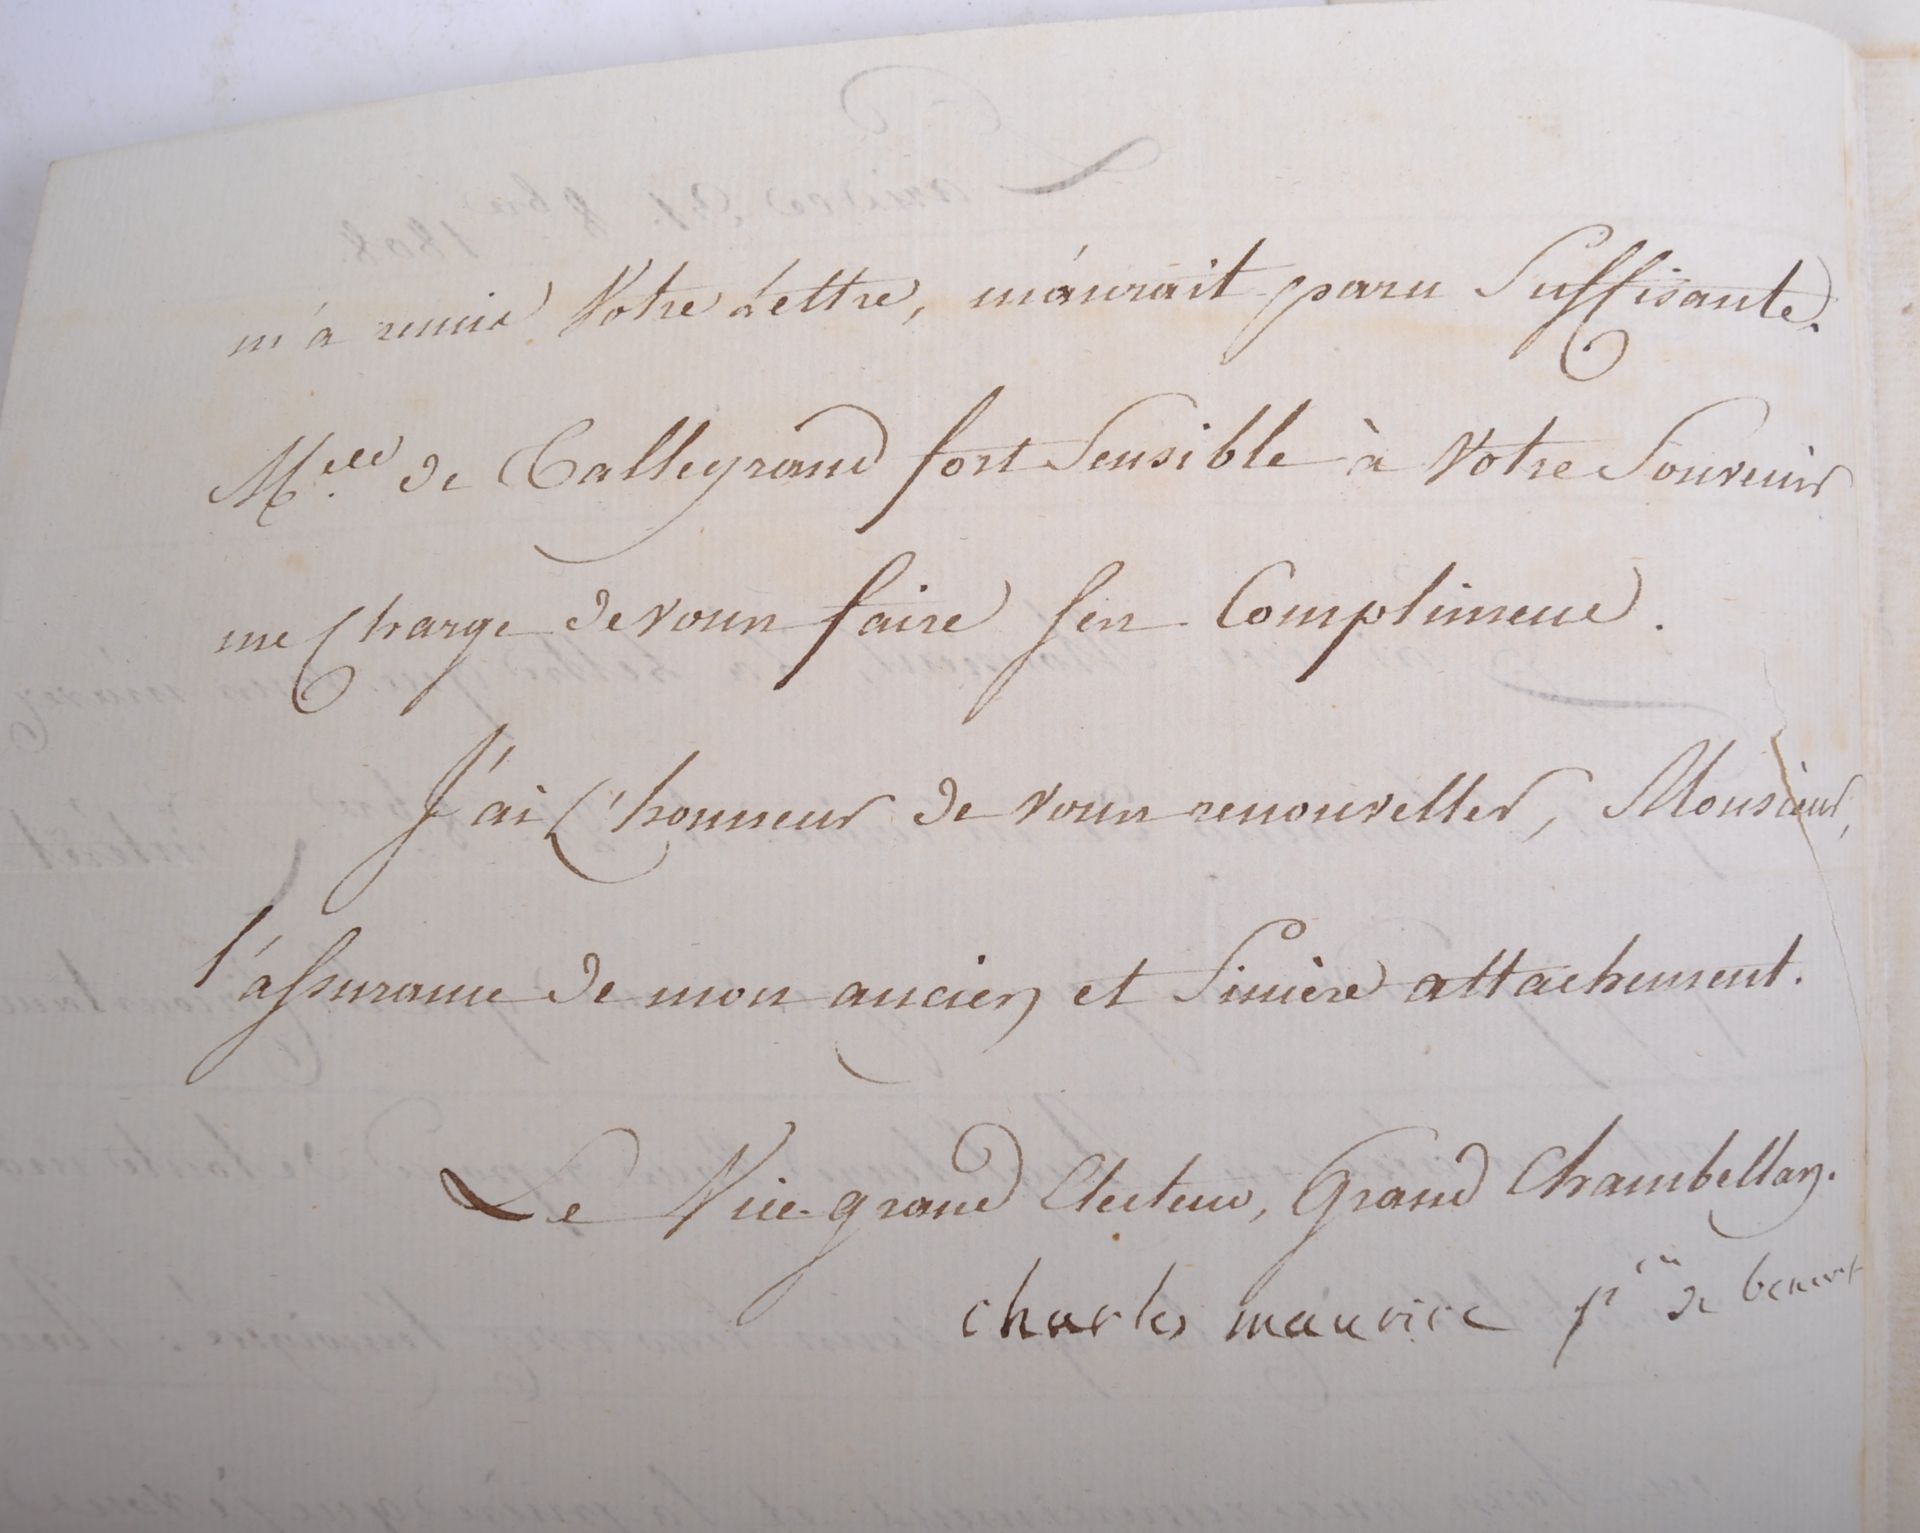 m'a remis Votre Lettre, m'aurait paru Suffisante.
M.elle de Talleyrand fort Sensible à Votre Souvenir
me Charge de vous faire Ses Compliment.
J'ai L'honneur de vous renouveller, Monsieur,
l'assurance de mon ancien et Sincère attachement.
Le Vice-grand Electeur, Grand Chambellan.
charles maurice pce de benevt